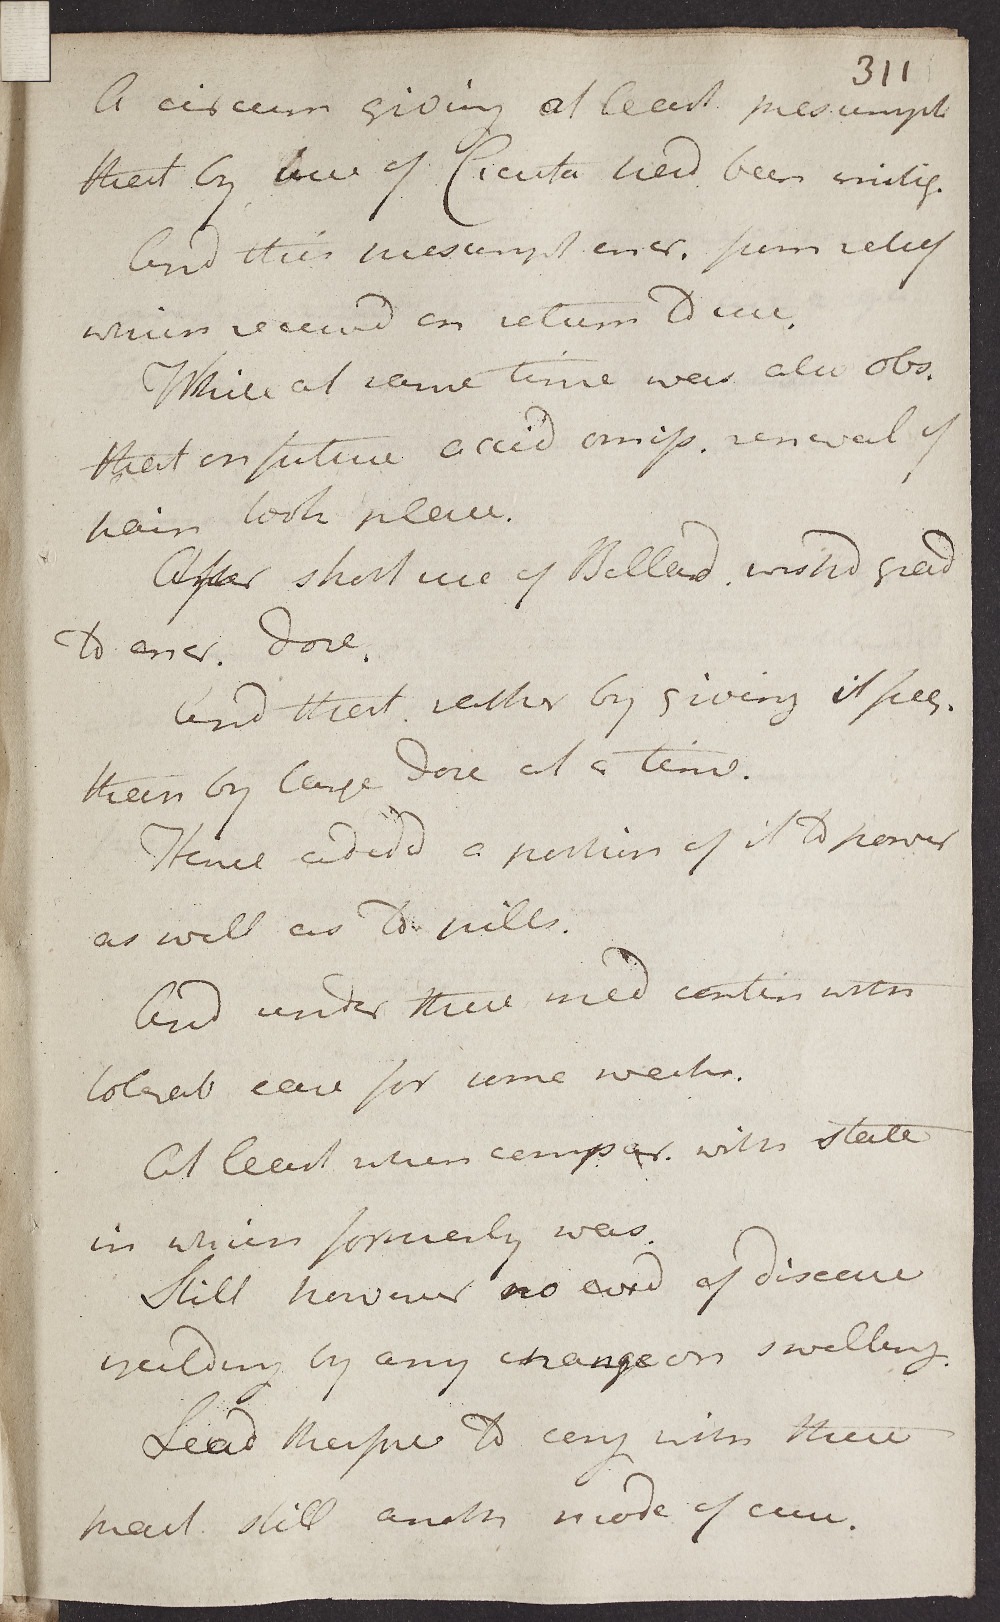 311
A circum giving at least presumpt
that by use of Cicuta had been mitig.
And this presumpt encr. from relief
which receivd on return to use.
While at same time was also obs.
that on future accid omiss. renewal of
pain took place.
After short use of Bellad. wishd grad
to encr. dose.
And that rather by giving it freq.
than by large dose at a time.
Hence added a portion of it to power
as well as to pills.
And under these med contin with
tolerab ease for some weeks.
At least when compar. with state
in which formerly was.
Still however no evid of disease
yeilding by any change on swelling.
Lead therfore to conj with these
pract still anoth mode of cure.